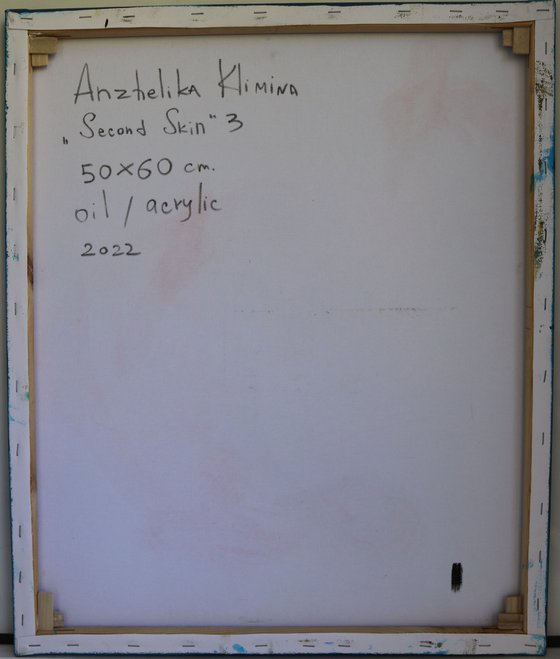 Anzhelika Klimina
„Second Skin" 3
50x60 cm.
oil / acrylic
2022